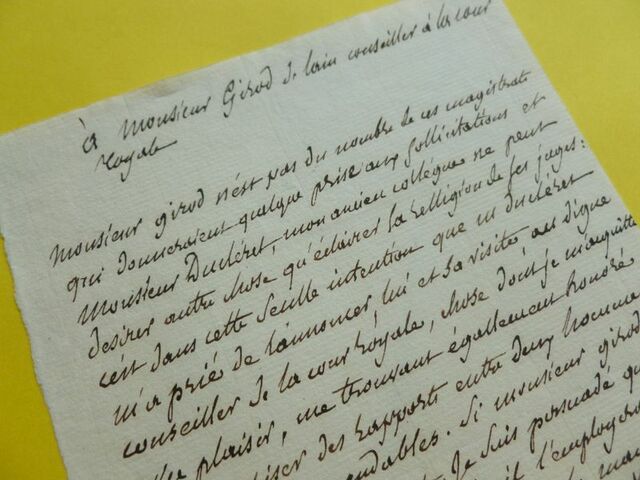 à Monsieur Girod de lain conseiller à la cour
royale
Monsieur girod n'est pas du nombre de ces magistrats
qui donneraient quelque prise aux sollicitations et
Monsieur Ducléret, mon ancien collégue ne peut
desirer autre chose qu'éclairer la relligion de ses juges:
c'est dans cette seulle intention que m ducléret
m'a prié de l'annoncer, lui et sa visite, au digne
conseiller de la cour royale, chose dont je m'acquitte
plaisir, me trouvant égallement honoré
des rapports entre deux hommes
. Si monsieur girod
je suis persuadé qu
il l'employera